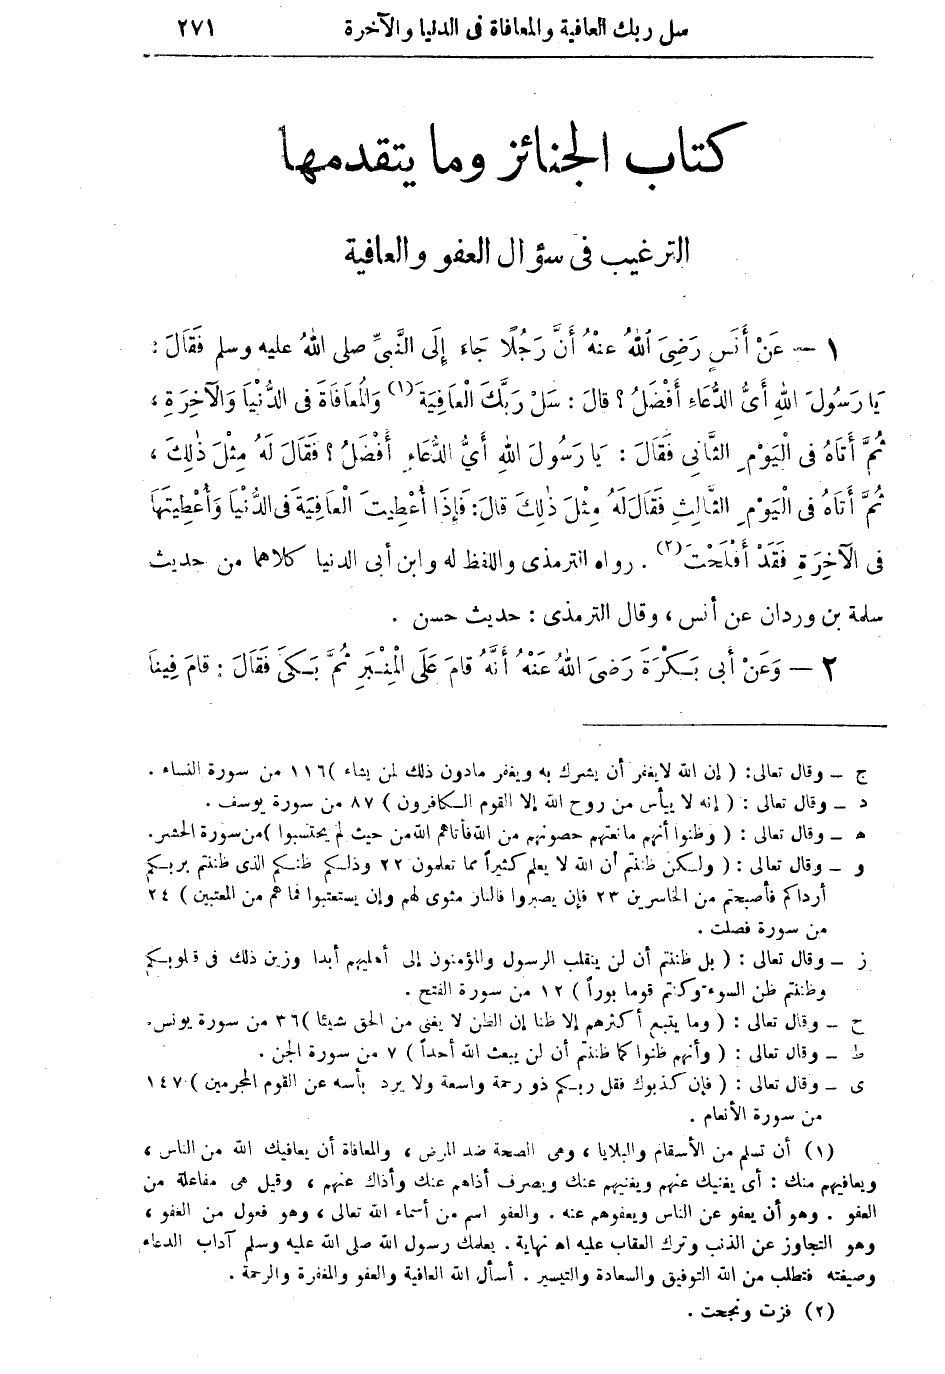 سل ربك العافية والمعافاة فى الدنيا والآخرة ٢٧١
كتاب الجنائز وما يتقدمها
الترغيب فى سؤال العفو والعافية
١ — عَنْ أَنَسٍ رَضِىَ اللهُ عنْهُ أَنَّ رَجُلًا جَاءَ إِلَى النَّبِىِّ صلى اللهُ عليه وسلم فَقَالَ :
يَا رَسُولَ اللهِ أَىُّ الدُّعَاءِ أَفْضَلُ ؟ قالَ : سَلْ رَبَّكَ الْعَافِيَةَ (١) وَالْمُعَافَاةَ فى الدُّنْيَا وَالْآخِرَةِ ،
ثُمَّ أَتَاهُ فى الْيَوْمِ الثَّانِى فَقَالَ : يَا رَسُولَ اللهِ أَىُّ الدُّعَاءِ أَفْضَلُ ؟ فَقَالَ لَهُ مِثْلَ ذٰلِكَ ،
ثُمَّ أَتَاهُ فى الْيَوْمِ الثَّالِثِ فَقَالَ لَهُ مِثْلَ ذٰلِكَ قالَ : فَإِذَا أُعْطِيتَ الْعَافِيَةَ فى الدُّنْيَا وَأُعْطِيتَهَا
فى الآخِرَةِ فَقَدْ أَفْلَحْتَ (٢) . رواه الترمذى واللفظ له وابن أبى الدنيا كلاهما من حديث
سلمة بن وردان عن أنس ، وقال الترمذى : حديث حسن .
٢ — وَعَنْ أَبى بَكْرَةَ رَضِىَ اللهُ عَنْهُ أَنَّهُ قامَ عَلَى الْمِنْبَرِ ثُمَّ بَكَى فَقَالَ : قامَ فِينَا
ج — وقال تعالى : ( إن الله لا يغفر أن يشرك به ويغفر مادون ذلك لمن يشاء ) ١١٦ من سورة النساء .
د — وقال تعالى : ( إنه لا ييأس من روح الله إلا القوم الكافرون ) ٨٧ من سورة يوسف .
ه — وقال تعالى : ( وظنوا أنهم مانعتهم حصونهم من الله فأتاهم الله من حيث لم يحتسبوا ) من سورة الحشر .
و — وقال تعالى : ( ولكن ظننتم أن الله لا يعلم كثيراً مما تعلمون ٢٢ وذلكم ظنكم الذى ظننتم بربكم
أرداكم فأصبحتم من الخاسرين ٢٣ فإن يصبروا فالنار مثوى لهم وإن يستعتبوا فما هم من المعتبين ) ٢٤
من سورة فصلت .
ز — وقال تعالى : ( بل ظننتم أن لن ينقلب الرسول والمؤمنون إلى أهليهم أبدا وزين ذلك فى قلوبكم
وظننتم ظن السوء وكنتم قوما بوراً ) ١٢ من سورة الفتح .
ح — وقال تعالى : ( وما يتبع أكثرهم إلا ظنا إن الظن لا يغنى من الحق شيئا ) ٣٦ من سورة يونس .
ط — وقال تعالى : ( وأنهم ظنوا كما ظننتم أن لن يبعث الله أحداً ) ٧ من سورة الجن .
ى — وقال تعالى : ( فإن كذبوك فقل ربكم ذو رحمة واسعة ولا يرد بأسه عن القوم المجرمين ) ١٤٧
من سورة الأنعام .
(١) أن تسلم من الأسقام والبلايا ، وهى الصحة ضد المرض ، والمعافاة أن يعافيك الله من الناس ،
ويعافيهم منك : أى يغنيك عنهم ويغنيهم عنك ويصرف أذاهم عنك وأذاك عنهم ، وقيل هى مفاعلة من
العفو . وهو أن يعفو عن الناس ويعفوهم عنه . والعفو اسم من أسماء الله تعالى ، وهو فعول من العفو ،
وهو التجاوز عن الذنب وترك العقاب عليه اه نهاية . يعلمك رسول الله صلى الله عليه وسلم آداب الدعاء
وصيغته فتطلب من الله التوفيق والسعادة والتيسير . أسأل الله العافية والعفو والمغفرة والرحمة .
(٢) فزت ونجحت .